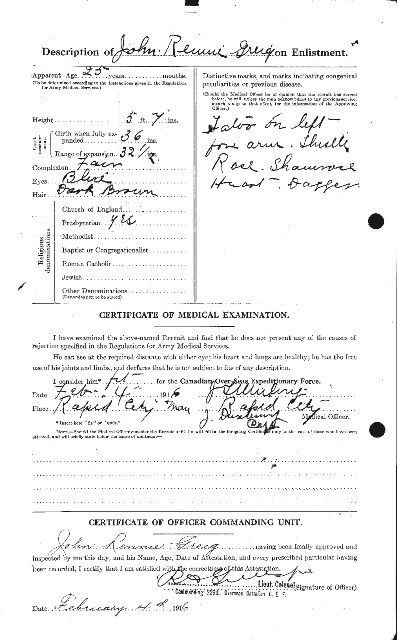 Description of John Rennie Greig on Enlistment.
Apparent Age 25 years months.
(To be determined according to the instructions given in the Regulations for Army Medical Services.)
Height 5 ft. 7 ins.
Girth when fully expanded 36 ins.
Range of expansion ins.
Complexion Fair
Eyes Blue
Hair Dark Brown
Religious denominations
Church of England
Presbyterian Yes
Methodist
Baptist or Congregationalist
Roman Catholic
Jewish
Other Denominations
(Denomination not to be stated)
Distinctive marks, and marks indicating congenital peculiarities or previous disease.
(Should the Medical Officer be of opinion that the recruit has served before, he will, unless the man acknowledges to any previous service, attach a slip to that effect, for the information of the Approving Officer.)
Tatoo on left
fore arm. Thistle
Rose. Shamrock
Heart - Dagger
CERTIFICATE OF MEDICAL EXAMINATION.
I have examined the above-named Recruit and find that he does not present any of the causes of
rejection specified in the Regulations for Army Medical Services.
He can see at the required distance with either eye; his heart and lungs are healthy; he has the free
use of his joints and limbs, and declares that he is not subject to fits of any description.
I consider him* fit for the Canadian Over-Seas Expeditionary Force.
Date Feb. 4 1916
Place Rapid City Man
Rapid City
Medical Officer.
Capt
*Insert here "fit" or "unfit."
Note.—Should the Medical Officer consider the Recruit unfit, he will fill in the foregoing Certificate only in the case of those who have been attested, and will briefly state below the cause of unfitness:—
CERTIFICATE OF OFFICER COMMANDING UNIT.
John Rennie Greig having been finally approved and
inspected by me this day, and his Name, Age, Date of Attestation, and every prescribed particular having
been recorded, I certify that I am satisfied with the correctness of this Attestation.
Lieut. Colonel (Signature of Officer)
Overseas Battalion C. E. F.
Date February 4th 1916